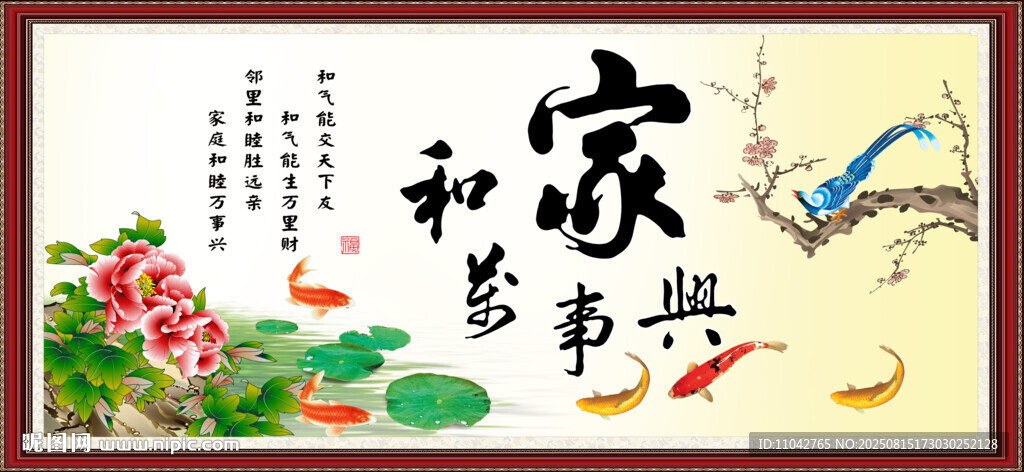 家
和
萬
事
興
和气能交天下友
和气能生万里财
邻里和睦胜远亲
家庭和睦万事兴
昵图网 www.nipic.com
ID:11042765 NO:20250815173030252128